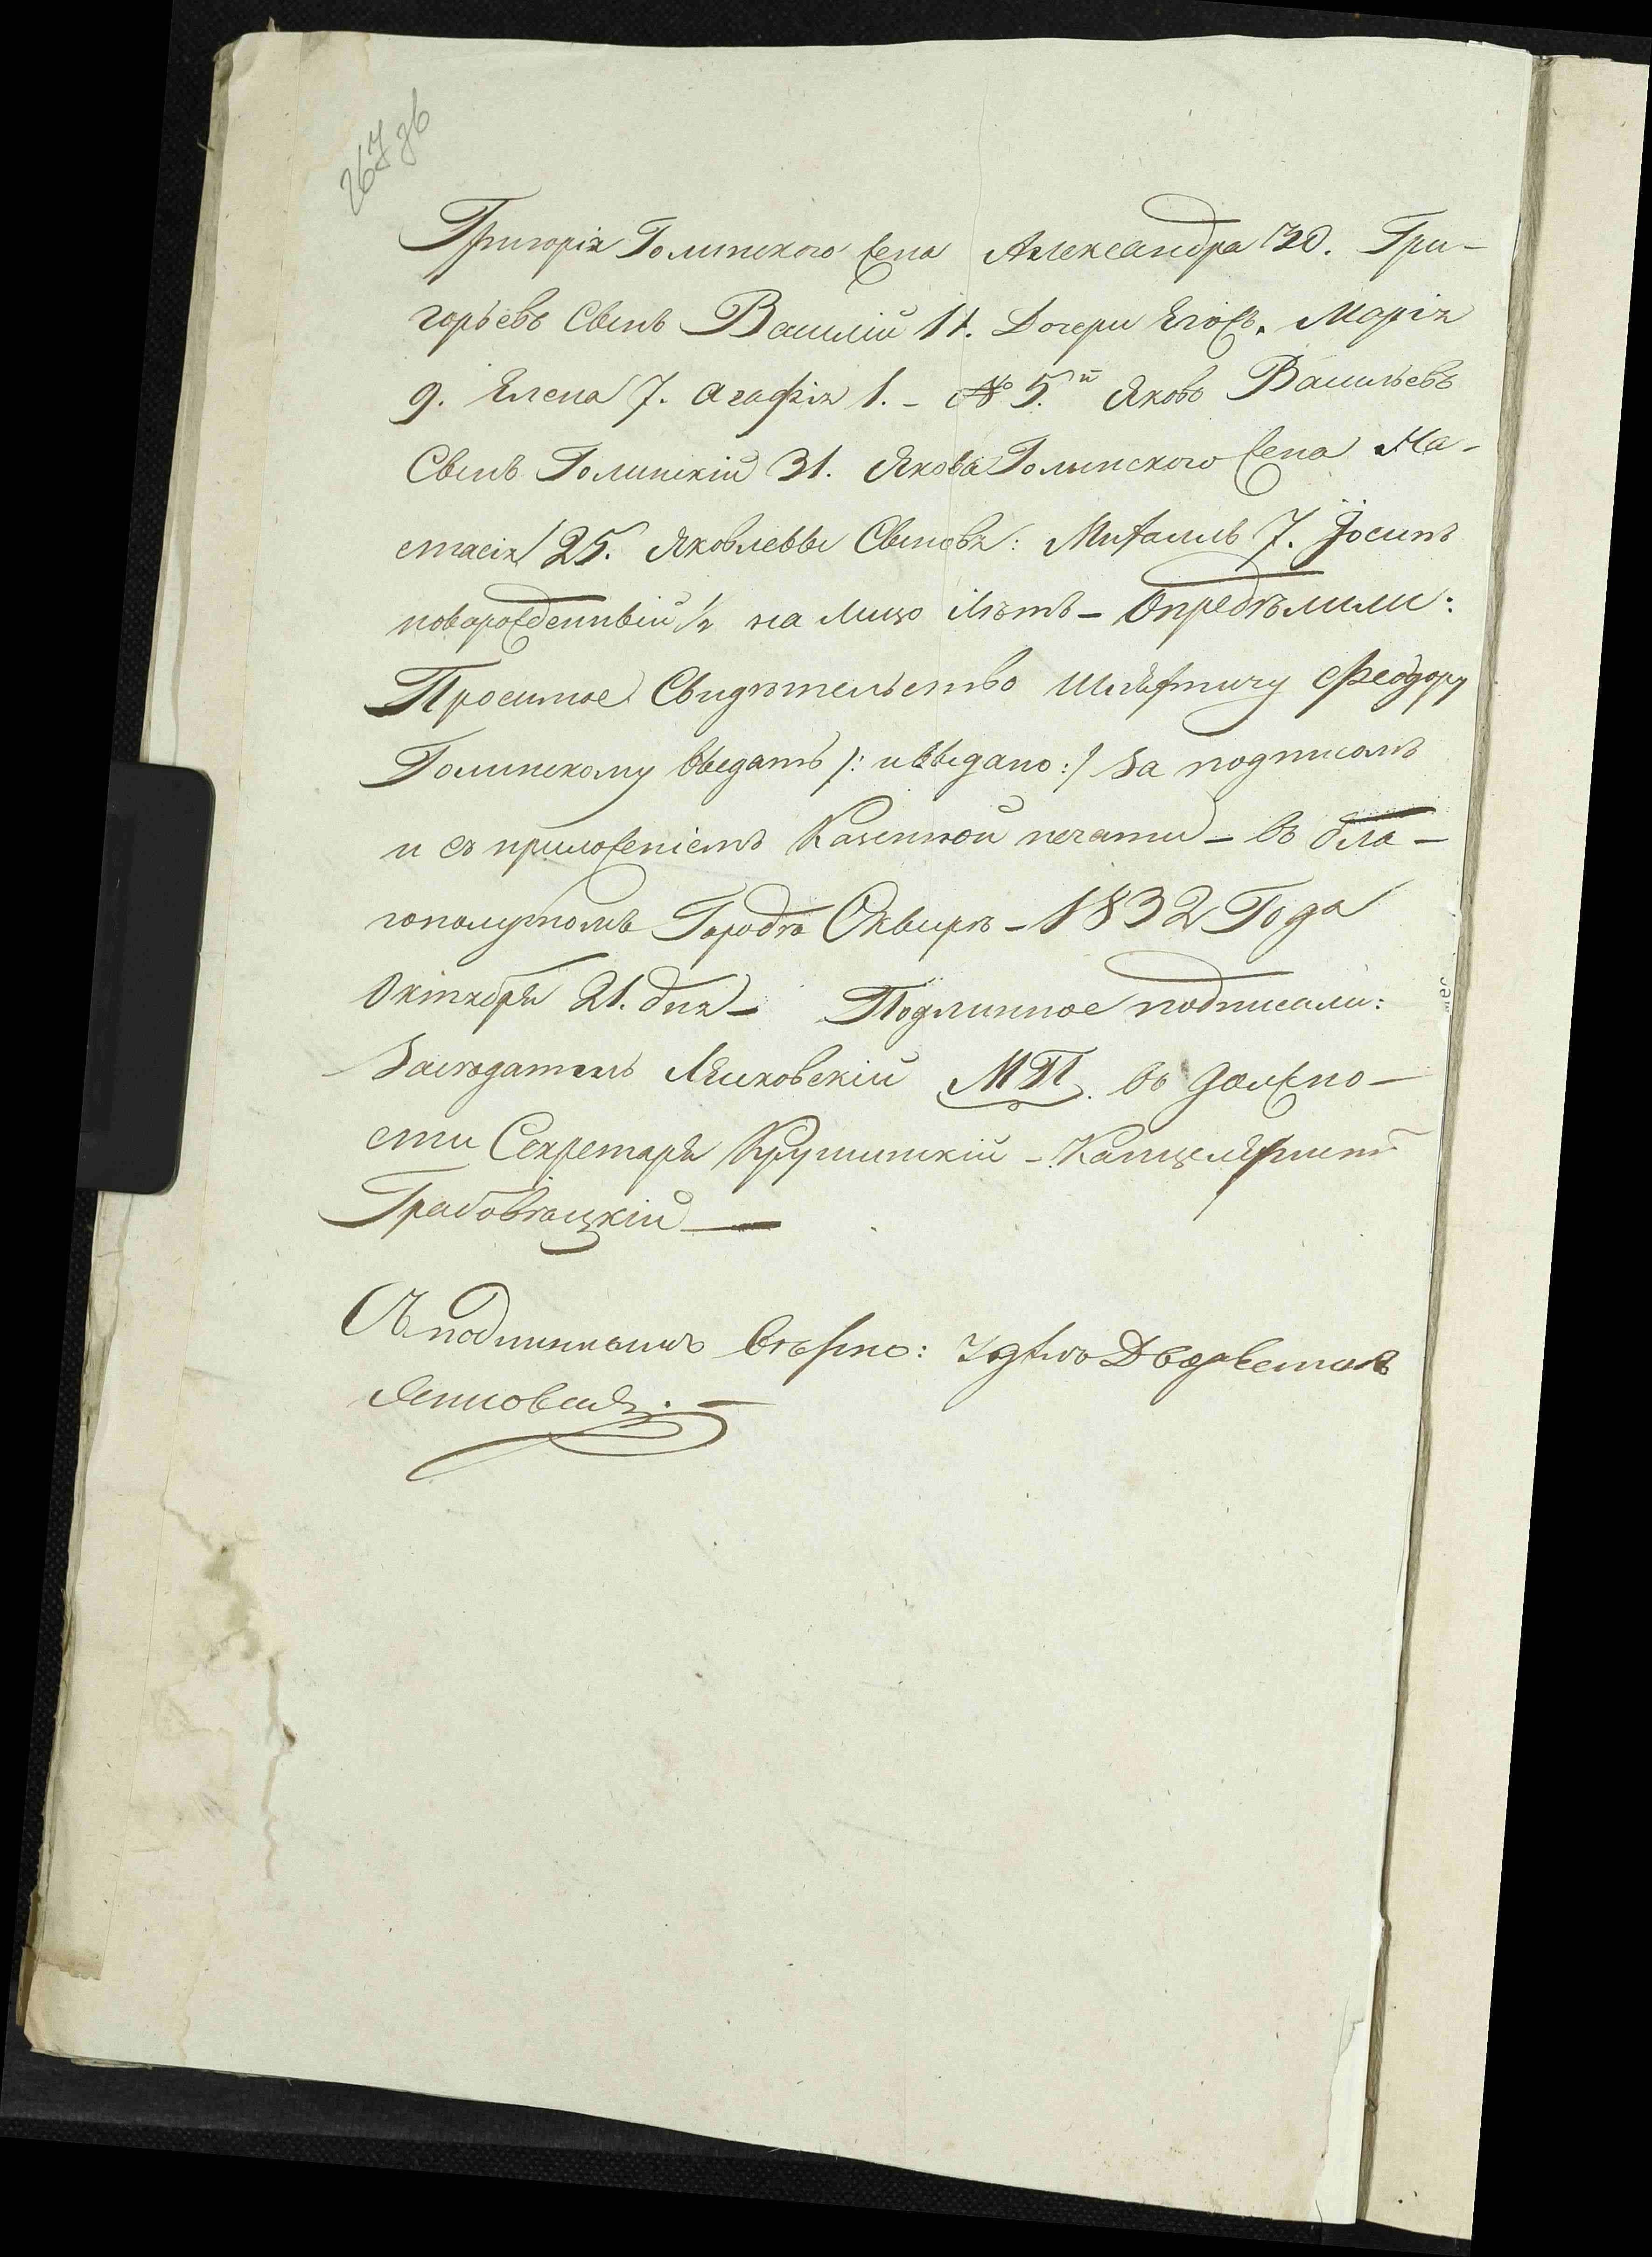 267 зв
Григорія Голинского жена Александра 30. Гри-
горьевъ Сынъ Василій 11. Дочери Егожъ. Марія
9. Елена 7. Агафія 1. - № 5.й Яковъ Васильевъ
Сынъ Голинскій 31. Якова Голинского жена На-
стасія 25. Яковлевы Сыновя: Михаилъ 7. Іосипъ
новорожденный ½ на лицо лѣтъ - Опредѣлили:
Просимое Свидѣтельство Шляхтичу Феодору
Голинскому выдать /: и выдано :/ за подписомъ
и съ приложеніемъ Казенной печати - въ бла-
гополучномъ Городѣ Сквирѣ - 1832 Года
Октября 21. дня - Подлинное подписали:
Засѣдатель Ляховскій МП. въ должно-
сти Секретаря Крушинскій - Канцеляристъ
Грабовѣцкій
Съ подлиннымъ вѣрно: Уѣздн Дворянства